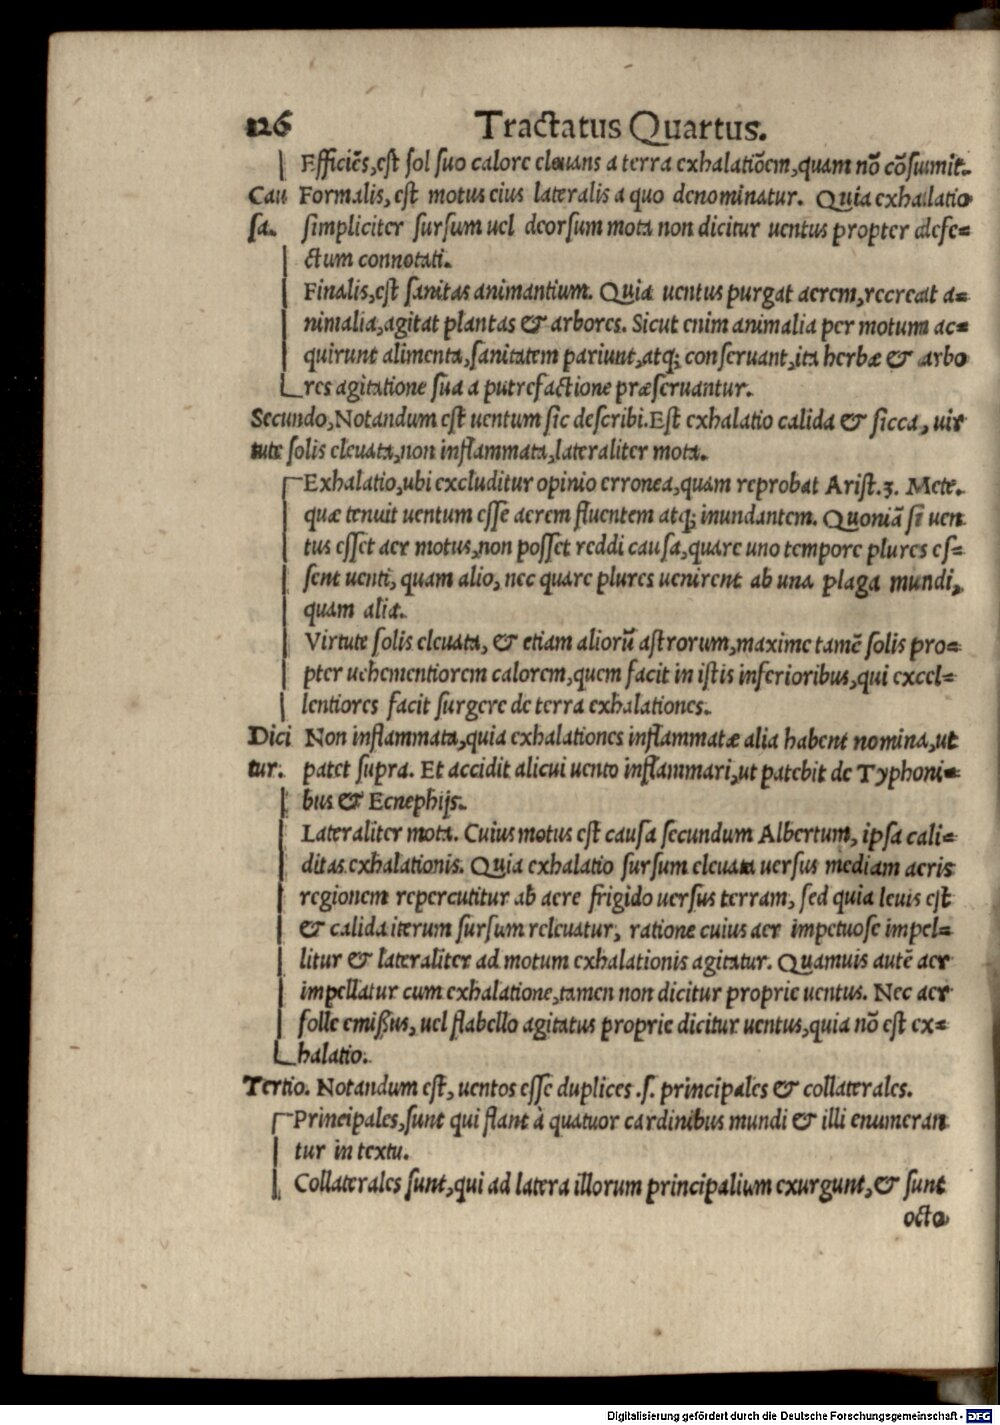 126 Tractatus Quartus.
Efficiẽs,est sol suo calore eleuans a terra exhalatiõem,quam nõ cõsumit.
Cau Formalis,est motus eius lateralis a quo denominatur. Quia exhalatio
sa. simpliciter sursum uel deorsum mota non dicitur uentus propter defe=
ctum connotati.
Finalis,est sanitas animantium. Quia uentus purgat aerem,recreat a=
nimalia,agitat plantas & arbores. Sicut enim animalia per motum ac=
quirunt alimenta,sanitatem pariunt,atq; conseruant,ita herbæ & arbo
res agitatione sua a putrefactione præseruantur.
Secundo,Notandum est uentum sic describi.Est exhalatio calida & sicca, uir
tute solis eleuata,non inflammata,lateraliter mota.
Exhalatio,ubi excluditur opinio erronea,quam reprobat Arist.3. Mete.
quæ tenuit uentum esse aerem fluentem atq; inundantem. Quoniã si uen
tus esset aer motus,non posset reddi causa,quare uno tempore plures es=
sent uenti, quam alio, nec quare plures uenirent ab una plaga mundi,
quam alia.
Virtute solis eleuata, & etiam aliorũ astrorum,maxime tamẽ solis pro=
pter uehementiorem calorem,quem facit in istis inferioribus,qui excel=
lentiores facit surgere de terra exhalationes.
Dici Non inflammata,quia exhalationes inflammatæ alia habent nomina,ut
tur. patet supra. Et accidit alicui uento inflammari,ut patebit de Typhoni=
bus & Ecnephijs.
Lateraliter mota. Cuius motus est causa secundum Albertum, ipsa cali=
ditas exhalationis. Quia exhalatio sursum eleuata uersus mediam aeris
regionem repercutitur ab aere frigido uersus terram, sed quia leuis est
& calida iterum sursum releuatur, ratione cuius aer impetuose impel=
litur & lateraliter ad motum exhalationis agitatur. Quamuis autẽ aer
impellatur cum exhalatione,tamen non dicitur proprie uentus. Nec aer
folle emißus, uel flabello agitatus proprie dicitur uentus,quia nõ est ex=
halatio.
Tertio. Notandum est, uentos esse duplices .s. principales & collaterales.
Principales,sunt qui flant à quatuor cardinibus mundi & illi enumeran
tur in textu.
Collaterales sunt,qui ad latera illorum principalium exurgunt,& sunt
octo
Digitalisierung gefördert durch die Deutsche Forschungsgemeinschaft - DFG